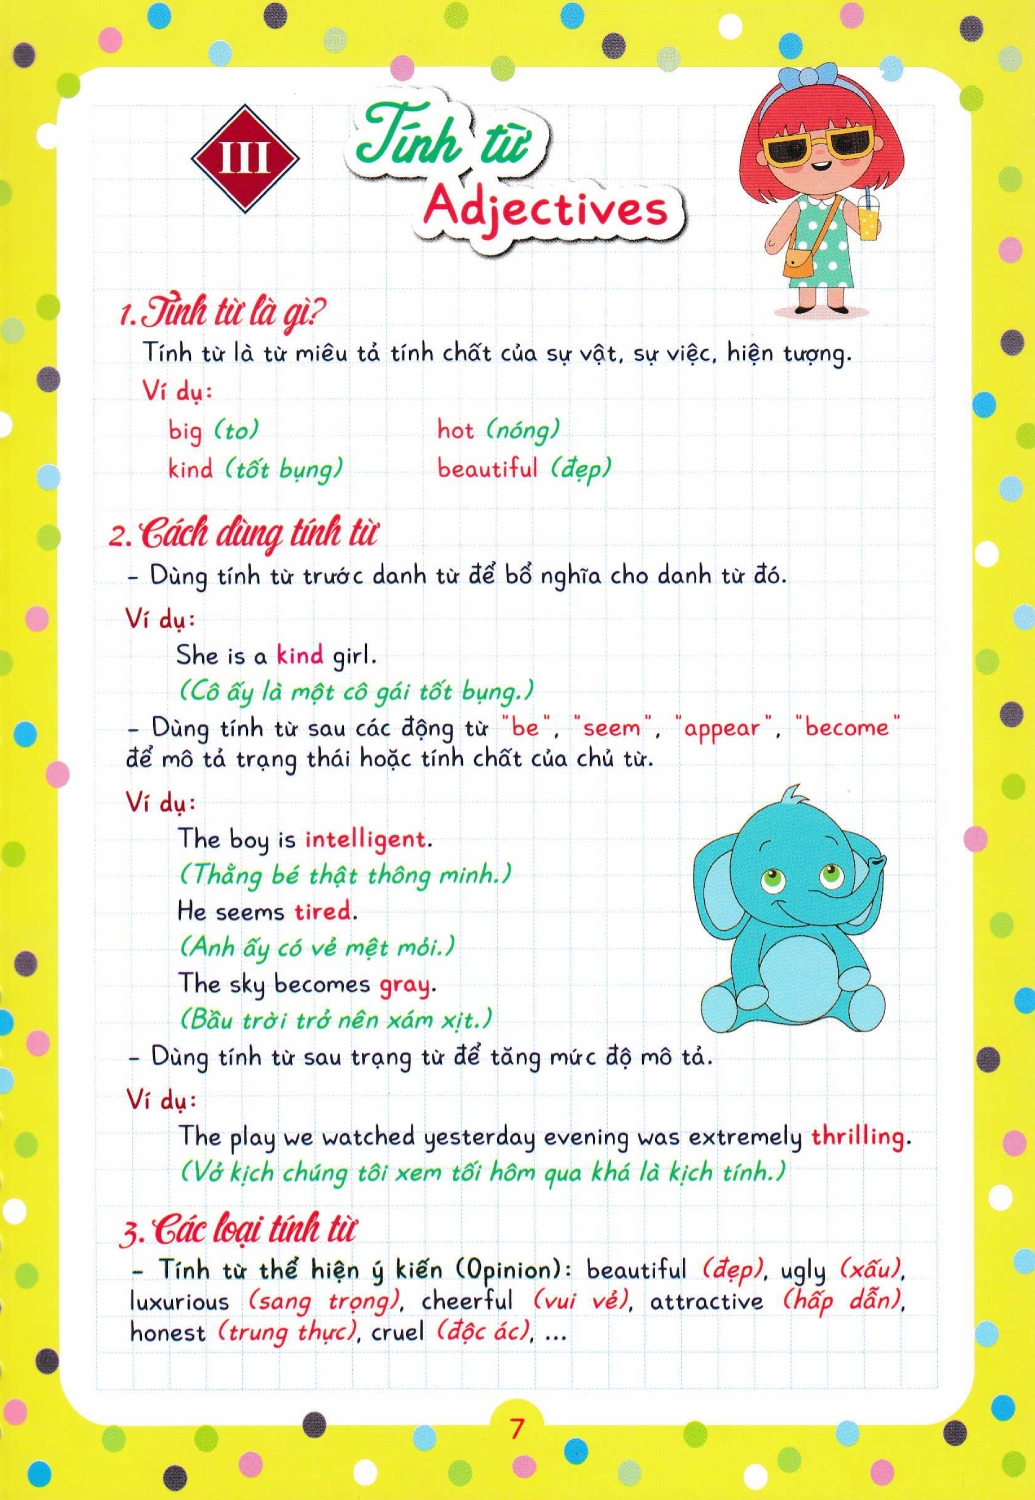 III
Tính từ
Adjectives
1. Tính từ là gì?
Tính từ là từ miêu tả tính chất của sự vật, sự việc, hiện tượng.
Ví dụ:
big (to) hot (nóng)
kind (tốt bụng) beautiful (đẹp)
2. Cách dùng tính từ
- Dùng tính từ trước danh từ để bổ nghĩa cho danh từ đó.
Ví dụ:
She is a kind girl.
(Cô ấy là một cô gái tốt bụng.)
- Dùng tính từ sau các động từ "be", "seem", "appear", "become"
để mô tả trạng thái hoặc tính chất của chủ từ.
Ví dụ:
The boy is intelligent.
(Thằng bé thật thông minh.)
He seems tired.
(Anh ấy có vẻ mệt mỏi.)
The sky becomes gray.
(Bầu trời trở nên xám xịt.)
- Dùng tính từ sau trạng từ để tăng mức độ mô tả.
Ví dụ:
The play we watched yesterday evening was extremely thrilling.
(Vở kịch chúng tôi xem tối hôm qua khá là kịch tính.)
3. Các loại tính từ
- Tính từ thể hiện ý kiến (Opinion): beautiful (đẹp), ugly (xấu),
luxurious (sang trọng), cheerful (vui vẻ), attractive (hấp dẫn),
honest (trung thực), cruel (độc ác), ...
7